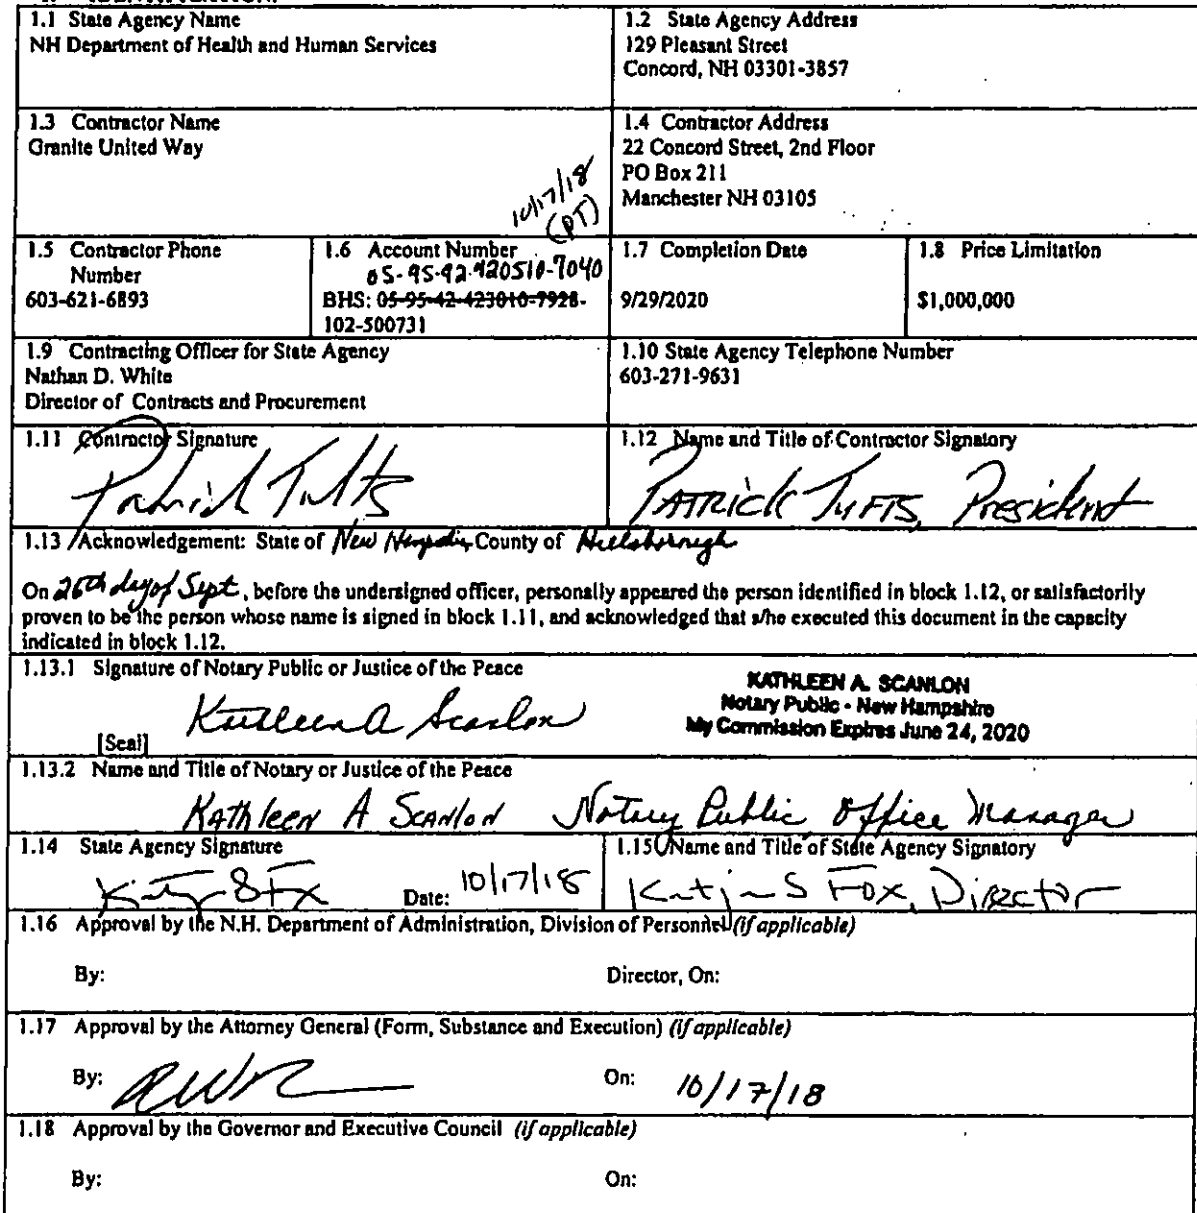 1.1 State Agency Name
NH Department of Health and Human Services
1.2 State Agency Address
129 Pleasant Street
Concord, NH 03301-3857
1.3 Contractor Name
Granite United Way
10/17/18
(PT)
1.4 Contractor Address
22 Concord Street, 2nd Floor
PO Box 211
Manchester NH 03105
1.5 Contractor Phone
Number
603-621-6893
1.6 Account Number
05-95-92-920510-7040
BHS: 05-95-42-423010-7928-
102-500731
1.7 Completion Date
9/29/2020
1.8 Price Limitation
$1,000,000
1.9 Contracting Officer for State Agency
Nathan D. White
Director of Contracts and Procurement
1.10 State Agency Telephone Number
603-271-9631
1.11 Contractor Signature
Patrick Tufts
1.12 Name and Title of Contractor Signatory
PATRICK TUFTS, President
1.13 Acknowledgement: State of New Hampshire County of Hillsborough
On day of Sept, before the undersigned officer, personally appeared the person identified in block 1.12, or satisfactorily
proven to be the person whose name is signed in block 1.11, and acknowledged that s/he executed this document in the capacity
indicated in block 1.12.
1.13.1 Signature of Notary Public or Justice of the Peace
Kathleen A Scanlon
[Seal]
KATHLEEN A. SCANLON
Notary Public - New Hampshire
My Commission Expires June 24, 2020
1.13.2 Name and Title of Notary or Justice of the Peace
Kathleen A Scanlon Notary Public Office Manager
1.14 State Agency Signature
Date: 10/17/18
1.15 Name and Title of State Agency Signatory
Katja S Fox, Director
1.16 Approval by the N.H. Department of Administration, Division of Personnel (if applicable)
By:
Director, On:
1.17 Approval by the Attorney General (Form, Substance and Execution) (if applicable)
By:
On: 10/17/18
1.18 Approval by the Governor and Executive Council (if applicable)
By:
On: